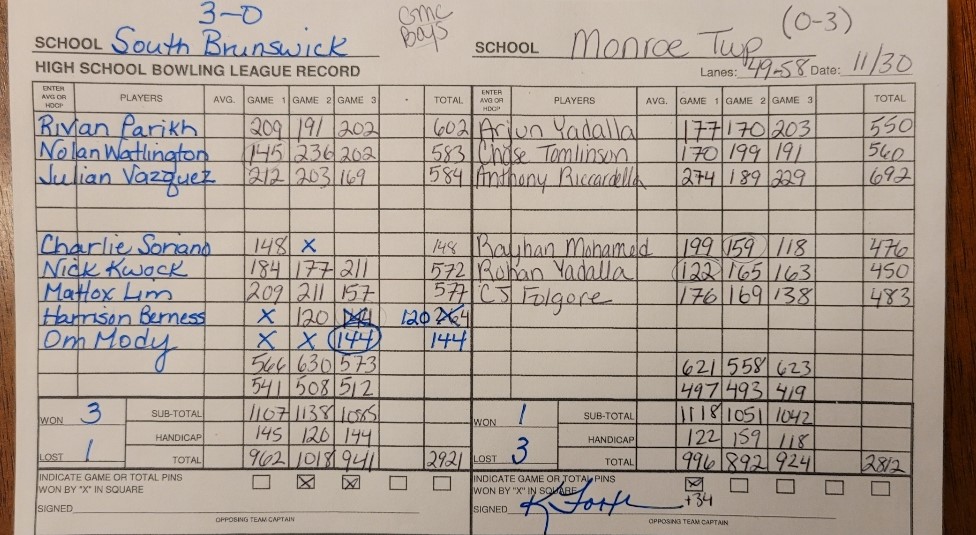 3-0
GMC Boys
(0-3)
SCHOOL South Brunswick
SCHOOL Monroe Twp
HIGH SCHOOL BOWLING LEAGUE RECORD
Lanes: 49-58 Date: 11/30
ENTER AVG OR HDCP PLAYERS AVG. GAME 1 GAME 2 GAME 3 TOTAL ENTER AVG OR HDCP PLAYERS AVG. GAME 1 GAME 2 GAME 3 TOTAL
Rivan Parikh 209 191 202 602 Arjun Yadalla 177 170 203 550
Nolan Watlington 145 236 202 583 Chase Tomlinson 170 199 191 560
Julian Vazquez 212 203 169 584 Anthony Riccardella 274 189 229 692
Charlie Soriano 148 X 148 Rayhan Mohamed 199 159 118 476
Nick Kwock 184 177 211 572 Rohan Yadalla 122 165 163 450
Mattox Lim 209 211 157 577 CJ Folgore 176 169 138 483
Harrison Berness X 120 120
Om Mody X X 144 144
566 630 573 621 558 623
541 508 512 497 493 419
WON 3 SUB-TOTAL 1107 1138 1085 WON 1 SUB-TOTAL 1118 1051 1042
HANDICAP 145 120 144 HANDICAP 122 159 118
LOST 1 TOTAL 962 1018 941 2921 LOST 3 TOTAL 996 892 924 2812
INDICATE GAME OR TOTAL PINS WON BY "X" IN SQUARE X X INDICATE GAME OR TOTAL PINS WON BY "X" IN SQUARE X
+34
SIGNED SIGNED
OPPOSING TEAM CAPTAIN OPPOSING TEAM CAPTAIN